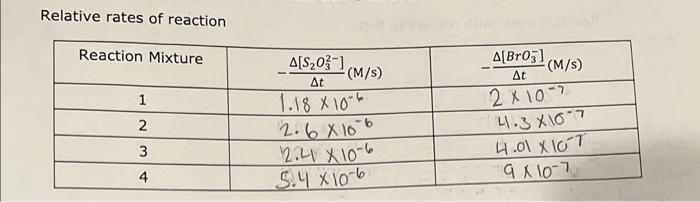 Relative rates of reaction
Reaction Mixture | -Δ[S₂O₃²⁻]/Δt (M/s) | -Δ[BrO₃⁻]/Δt (M/s)
1 | 1.18 × 10⁻⁶ | 2 × 10⁻⁷
2 | 2.6 × 10⁻⁶ | 4.3 × 10⁻⁷
3 | 2.4 × 10⁻⁶ | 4.01 × 10⁻⁷
4 | 5.4 × 10⁻⁶ | 9 × 10⁻⁷